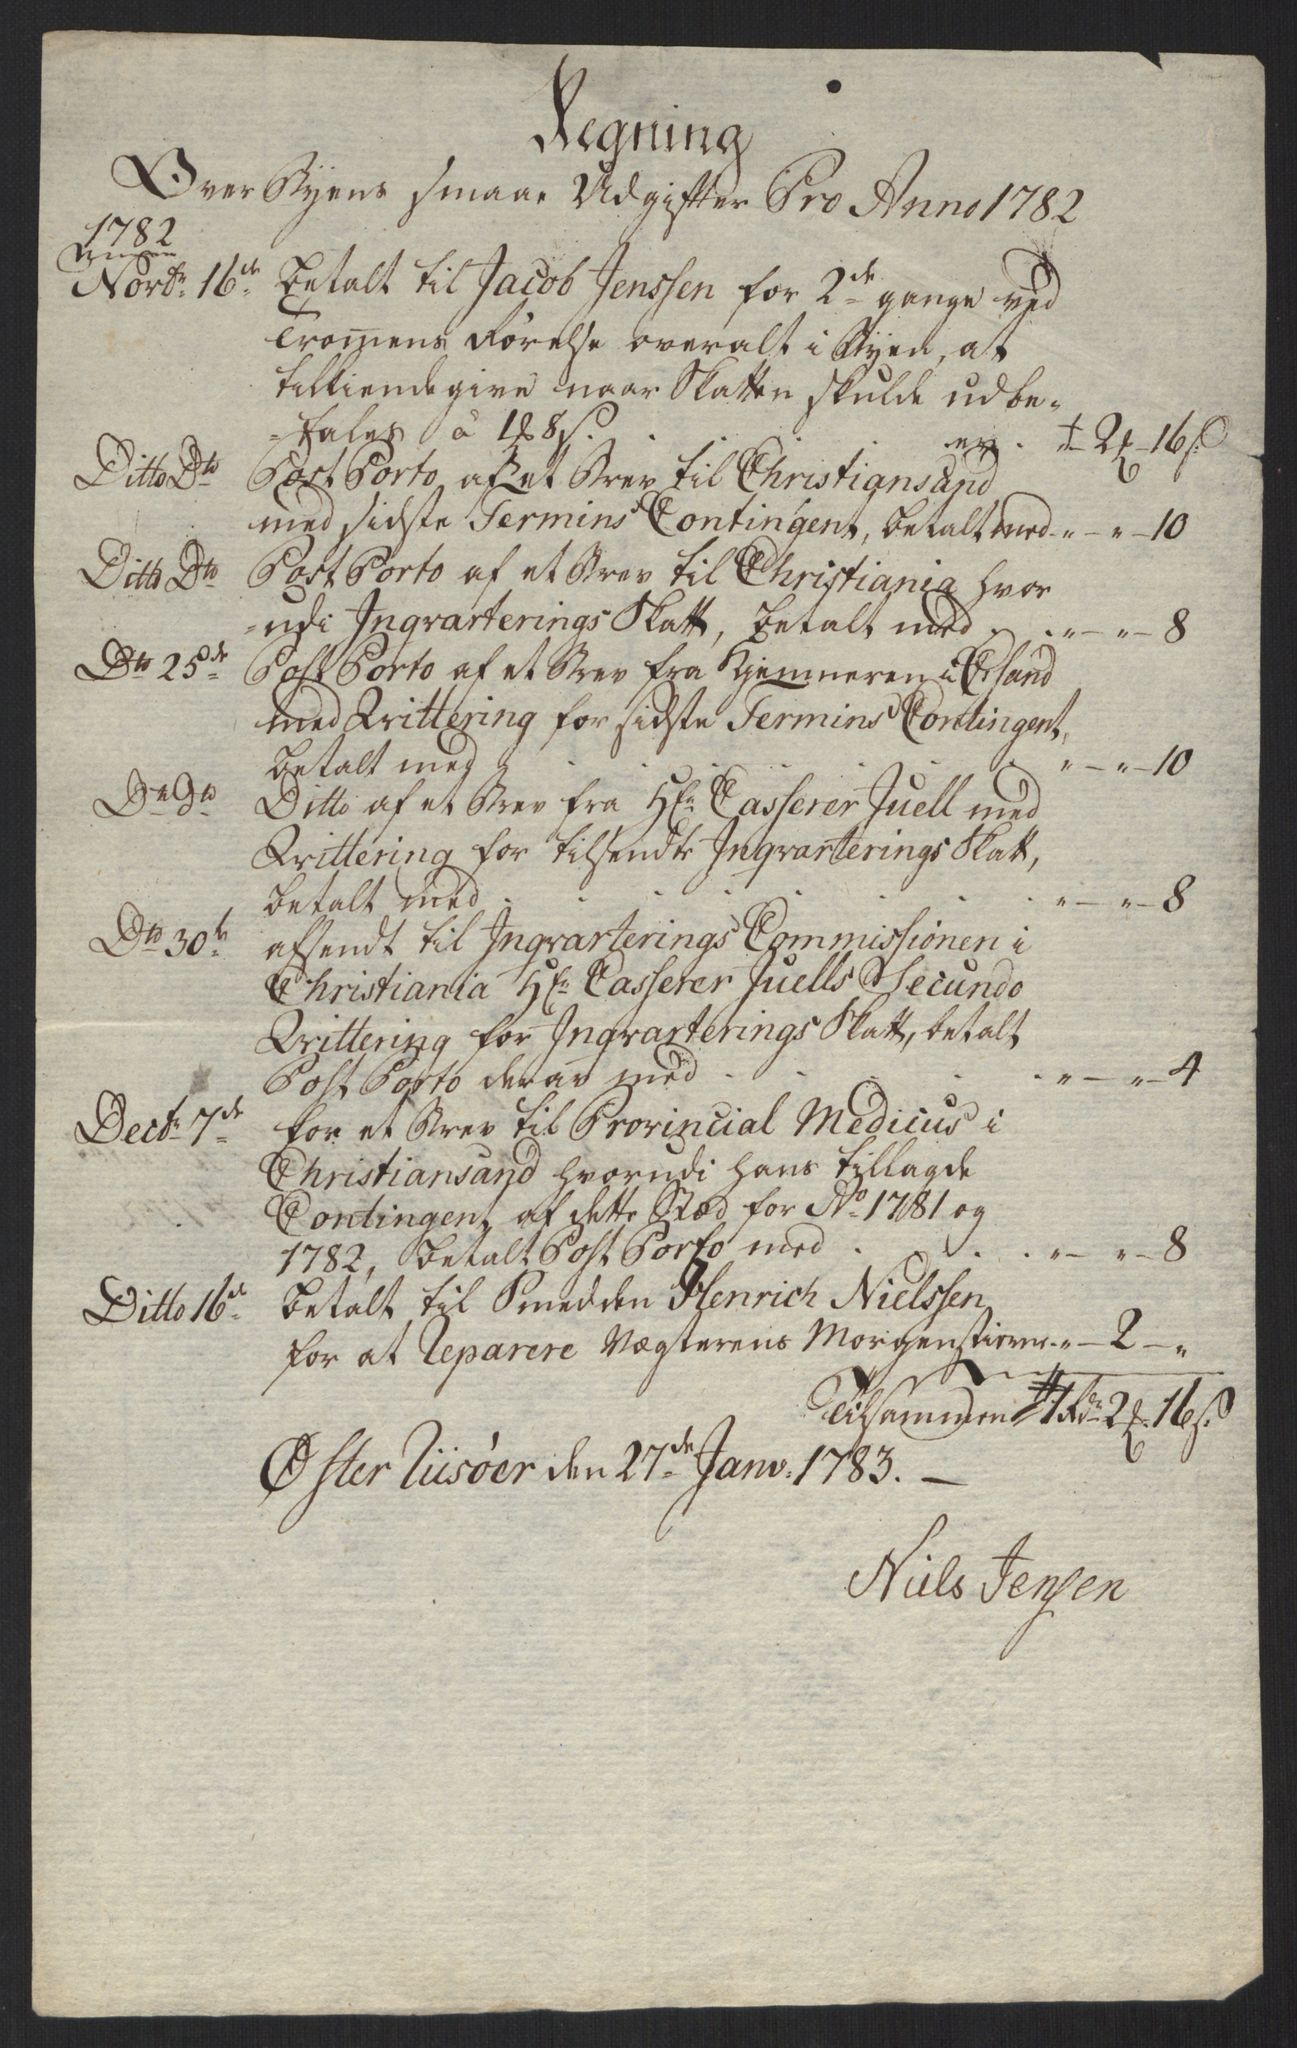 Regning
Over Byens smaae Udgifter Pro Anno 1782
1782
Novbr. 16de Betalt til Jacob Jenssen for 2de gange ved
Tromens Rørelse overalt i Byen, at
tilkiendegive naar Skatten skulde udbe-
-tales à 1 8s. er . 2 - 16s
Ditto Dto Post Porto af et Brev til Christiansand
med sidste Termins Contingent, betalt med - " - " - 10
Ditto Dto Post Porto af et Brev til Christiania hvor
-udi Inqvarterings Skatt, betalt med . . " - " - 8
Dto 25de Post Porto af et Brev fra Kjemneren i Chsand
med Qvittering for sidste Termins Contingent,
betalt med . . . . . " - " - 10
Do Do Ditto af et Brev fra Hr. Casserer Juell med
Qvittering for tilsendte Inqvarterings Skatt,
betalt med . . . . . . " - " - 8
Dto 30te afsendt til Inqvarterings Commissionen i
Christiania Hr. Casserer Juells Secundo
Qvittering for Inqvarterings Skatt, betalt
Post Porto derav med . . . . . " - " - 4
Decbr. 7de for et Brev til Provincial Medicus i
Christiansand hvorudi hans tillagde
Contingent af dette Stæd for Ao. 1781 og
1782, betalt Post Porto med . . . . " - " - 8
Ditto 16de betalt til Smedden Henrich Nielssen
for at Reparere Vægterens Morgenstierne " - 2 - "
Tilsammen 1 Rdr. 2 - 16s.
Øster Riisøer den 27de Janv. 1783. -
Niels Jensen